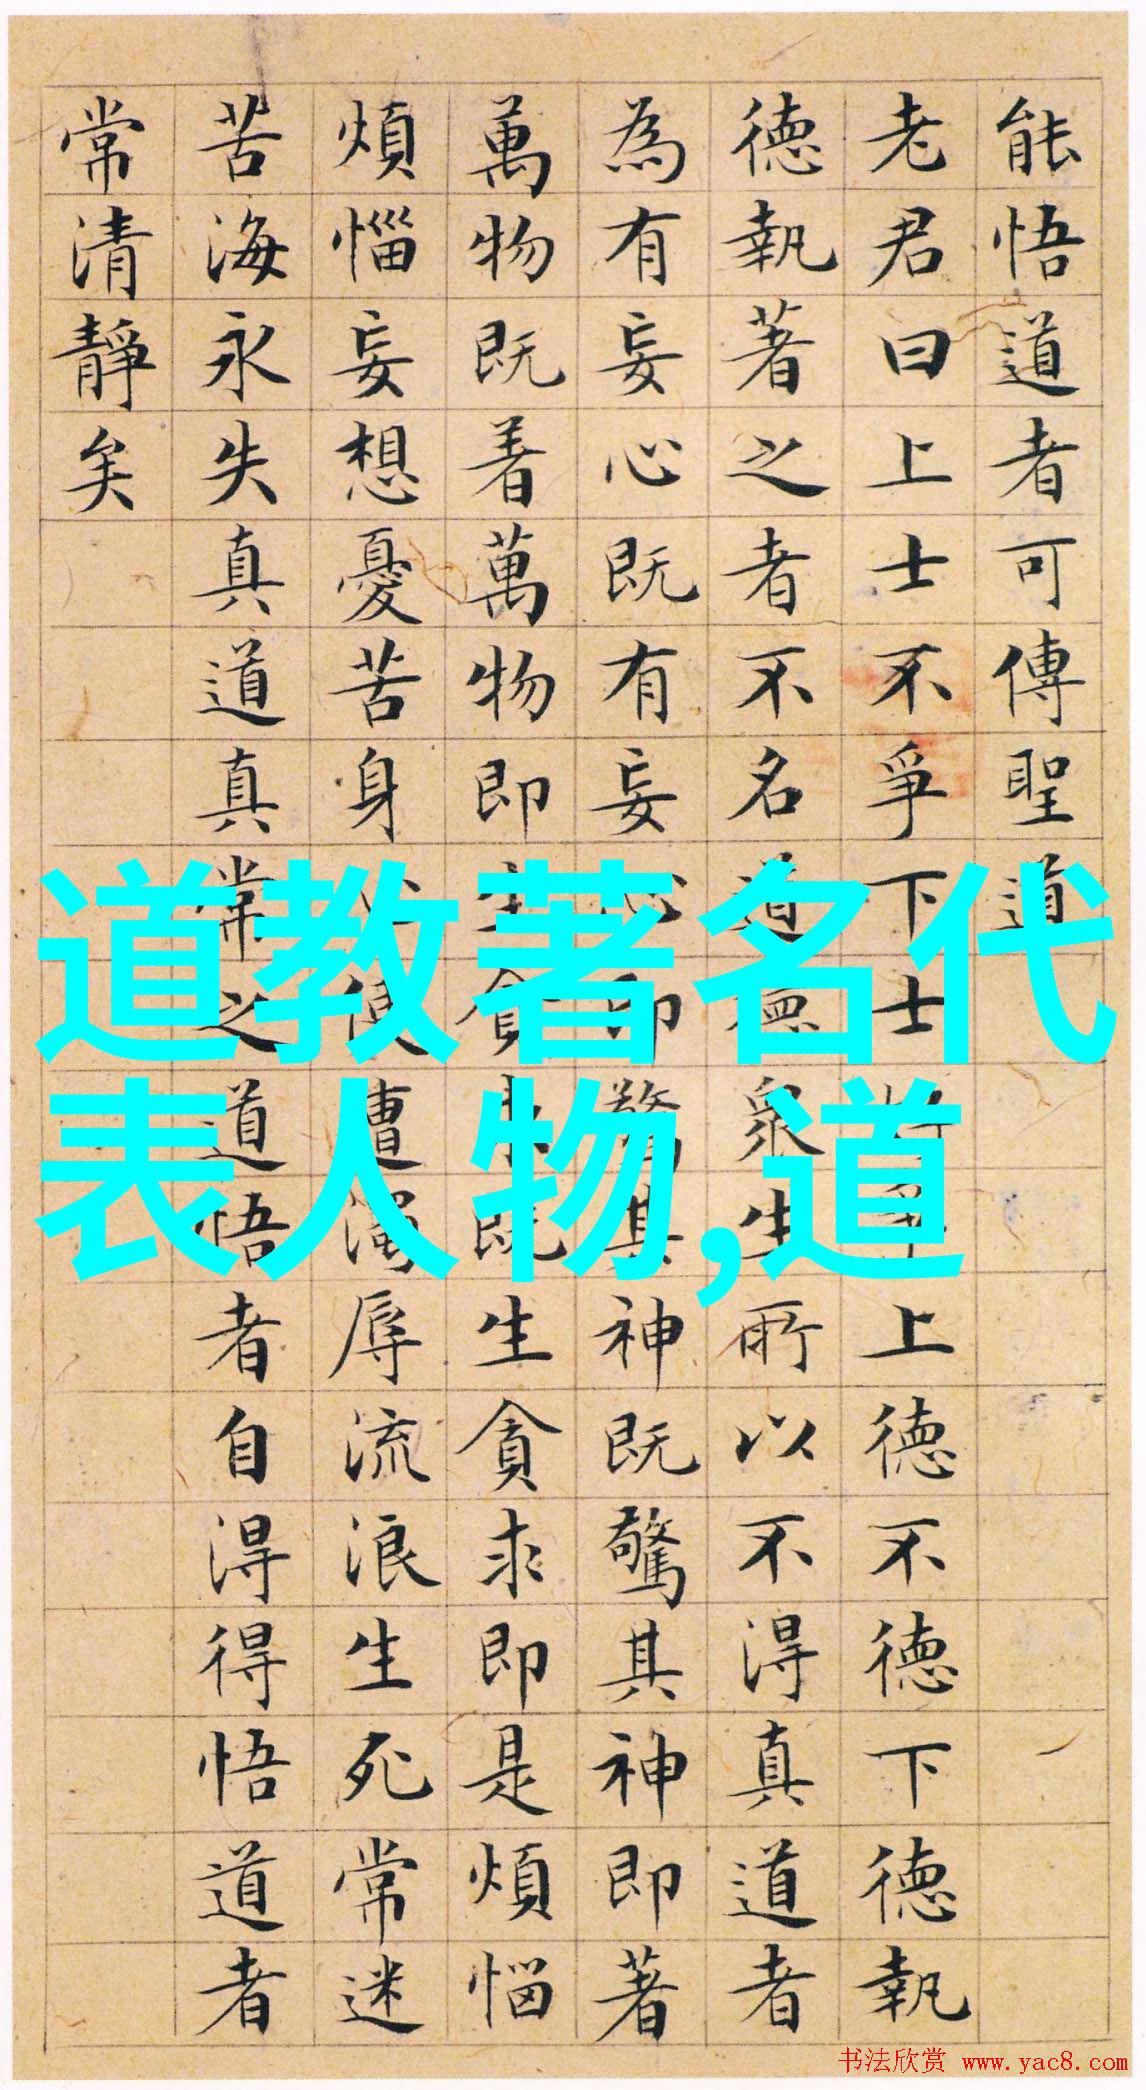 道教著名代
表人物,道
能悟道者可傳聖道
老君曰上士不爭下士上德不德下德執
德執著之者不名道德衆生所以不得真道者
為有妄心既有妄心即驚其神既驚其神即著
萬物既着萬物即生貪求既生貪求即是煩惱
煩惱妄想憂苦身心便遭濁辱流浪生死常迷
苦海永失真道真常之道悟者自得得悟道者
常清靜矣
书法欣赏 www.yac8.com